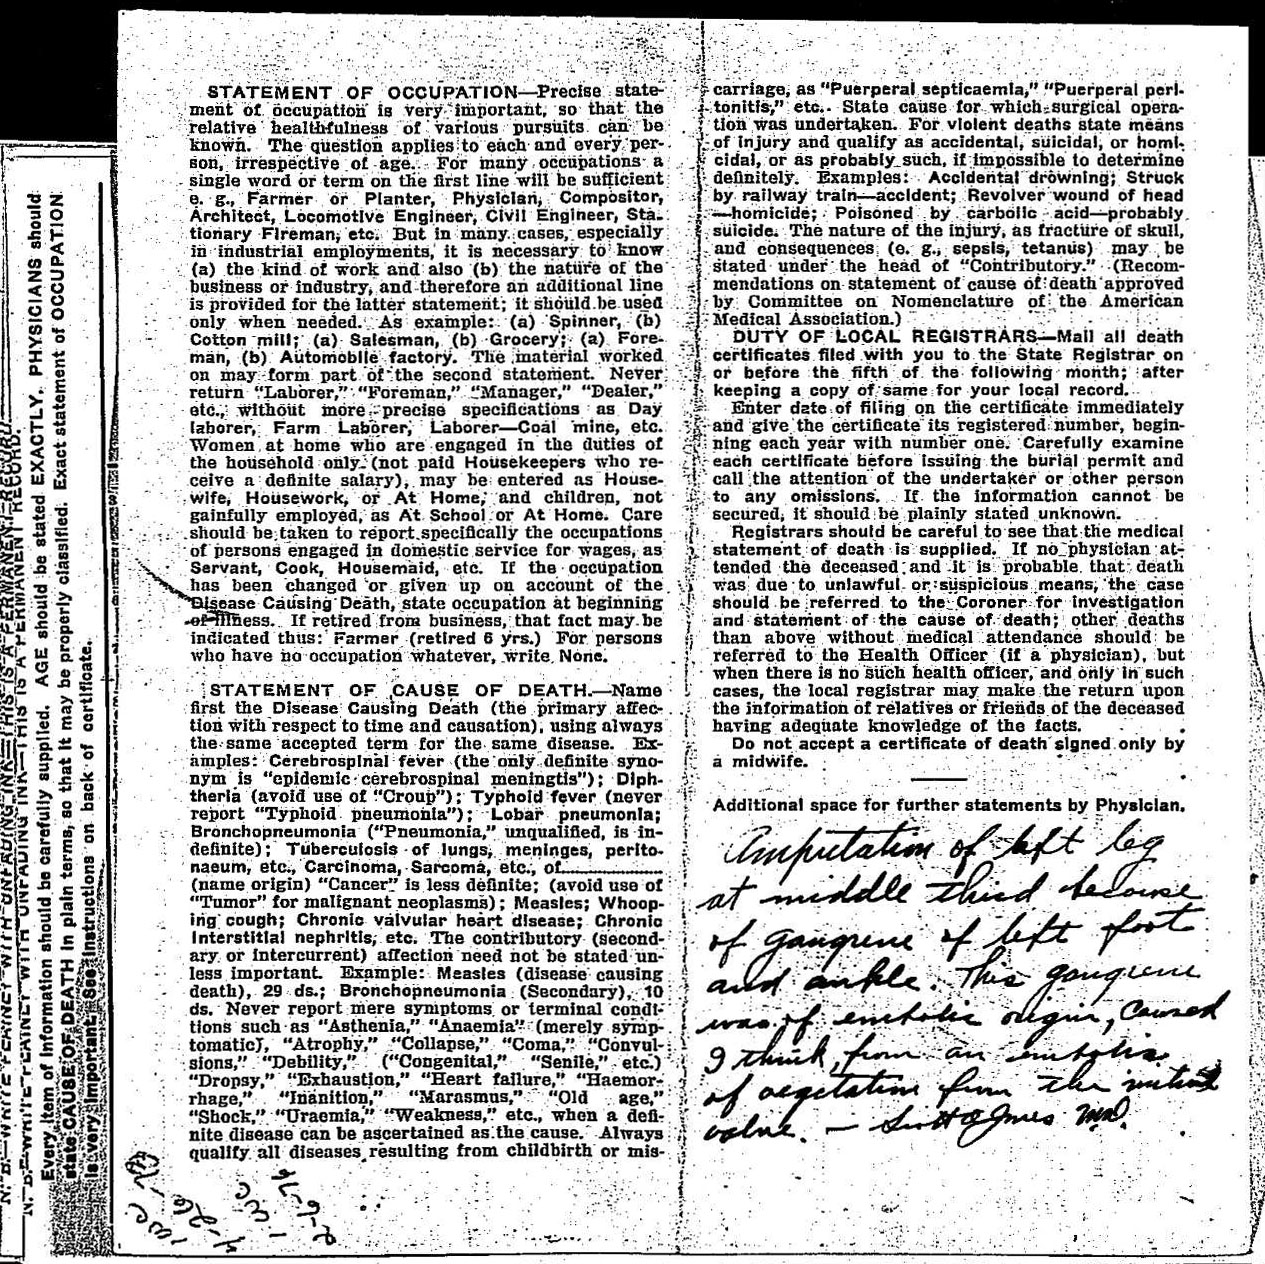 STATEMENT OF OCCUPATION—Precise state-
ment of occupation is very important, so that the
relative healthfulness of various pursuits can be
known. The question applies to each and every per-
son, irrespective of age. For many occupations a
single word or term on the first line will be sufficient
e. g., Farmer or Planter, Physician, Compositor,
Architect, Locomotive Engineer, Civil Engineer, Sta-
tionary Fireman, etc. But in many cases, especially
in industrial employments, it is necessary to know
(a) the kind of work and also (b) the nature of the
business or industry, and therefore an additional line
is provided for the latter statement; it should be used
only when needed. As example: (a) Spinner, (b)
Cotton mill; (a) Salesman, (b) Grocery; (a) Fore-
man, (b) Automobile factory. The material worked
on may form part of the second statement. Never
return "Laborer," "Foreman," "Manager," "Dealer,"
etc., without more precise specifications as Day
laborer, Farm Laborer, Laborer—Coal mine, etc.
Women at home who are engaged in the duties of
the household only (not paid Housekeepers who re-
ceive a definite salary), may be entered as House-
wife, Housework, or At Home, and children, not
gainfully employed, as At School or At Home. Care
should be taken to report specifically the occupations
of persons engaged in domestic service for wages, as
Servant, Cook, Housemaid, etc. If the occupation
has been changed or given up on account of the
Disease Causing Death, state occupation at beginning
of illness. If retired from business, that fact may be
indicated thus: Farmer (retired 6 yrs.) For persons
who have no occupation whatever, write None.
STATEMENT OF CAUSE OF DEATH.—Name
first the Disease Causing Death (the primary affec-
tion with respect to time and causation), using always
the same accepted term for the same disease. Ex-
amples: Cerebrospinal fever (the only definite syno-
nym is "epidemic cerebrospinal meningtis"); Diph-
theria (avoid use of "Croup"); Typhoid fever (never
report "Typhoid pneumonia"); Lobar pneumonia;
Bronchopneumonia ("Pneumonia," unqualified, is in-
definite); Tuberculosis of lungs, meninges, perito-
naeum, etc., Carcinoma, Sarcoma, etc., of............
(name origin) "Cancer" is less definite; (avoid use of
"Tumor" for malignant neoplasms); Measles; Whoop-
ing cough; Chronic valvular heart disease; Chronic
Interstitial nephritis, etc. The contributory (second-
ary or intercurrent) affection need not be stated un-
less important. Example: Measles (disease causing
death), 29 ds.; Bronchopneumonia (Secondary), 10
ds. Never report mere symptoms or terminal condi-
tions such as "Asthenia," "Anaemia" (merely symp-
tomatic), "Atrophy," "Collapse," "Coma," "Convul-
sions," "Debility," ("Congenital," "Senile," etc.)
"Dropsy," "Exhaustion," "Heart failure," "Haemor-
rhage," "Inanition," "Marasmus," "Old age,"
"Shock," "Uraemia," "Weakness," etc., when a defi-
nite disease can be ascertained as the cause. Always
qualify all diseases resulting from childbirth or mis-
carriage, as "Puerperal septicaemia," "Puerperal peri-
tonitis," etc. State cause for which surgical opera-
tion was undertaken. For violent deaths state means
of injury and qualify as accidental, suicidal, or homi-
cidal, or as probably such, if impossible to determine
definitely. Examples: Accidental drowning; Struck
by railway train—accident; Revolver wound of head
—homicide; Poisoned by carbolic acid—probably
suicide. The nature of the injury, as fracture of skull,
and consequences (e. g., sepsis, tetanus) may be
stated under the head of "Contributory." (Recom-
mendations on statement of cause of death approved
by Committee on Nomenclature of the American
Medical Association.)
DUTY OF LOCAL REGISTRARS—Mail all death
certificates filed with you to the State Registrar on
or before the fifth of the following month; after
keeping a copy of same for your local record.
Enter date of filing on the certificate immediately
and give the certificate its registered number, begin-
ning each year with number one. Carefully examine
each certificate before issuing the burial permit and
call the attention of the undertaker or other person
to any omissions. If the information cannot be
secured, it should be plainly stated unknown.
Registrars should be careful to see that the medical
statement of death is supplied. If no physician at-
tended the deceased and it is probable that death
was due to unlawful or suspicious means, the case
should be referred to the Coroner for investigation
and statement of the cause of death; other deaths
than above without medical attendance should be
referred to the Health Officer (if a physician), but
when there is no such health officer, and only in such
cases, the local registrar may make the return upon
the information of relatives or friends of the deceased
having adequate knowledge of the facts.
Do not accept a certificate of death signed only by
a midwife.
Additional space for further statements by Physician.
Amputation of left leg
at middle third because
of gangrene of left foot
and ankle. This gangrene
was of embolic origin, caused
I think, from an embolis
of vegetation from the mitral
valve. —
N. B.—WRITE PLAINLY WITH UNFADING INK—THIS IS A PERMANENT RECORD.
Every item of information should be carefully supplied. AGE should be stated EXACTLY. PHYSICIANS should
state CAUSE OF DEATH in plain terms, so that it may be properly classified. Exact statement of OCCUPATION
is very important. See instructions on back of certificate.